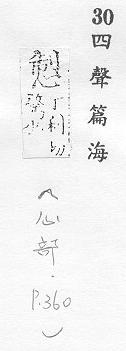 30 四聲篇海
丁利切
（心部．P.360）